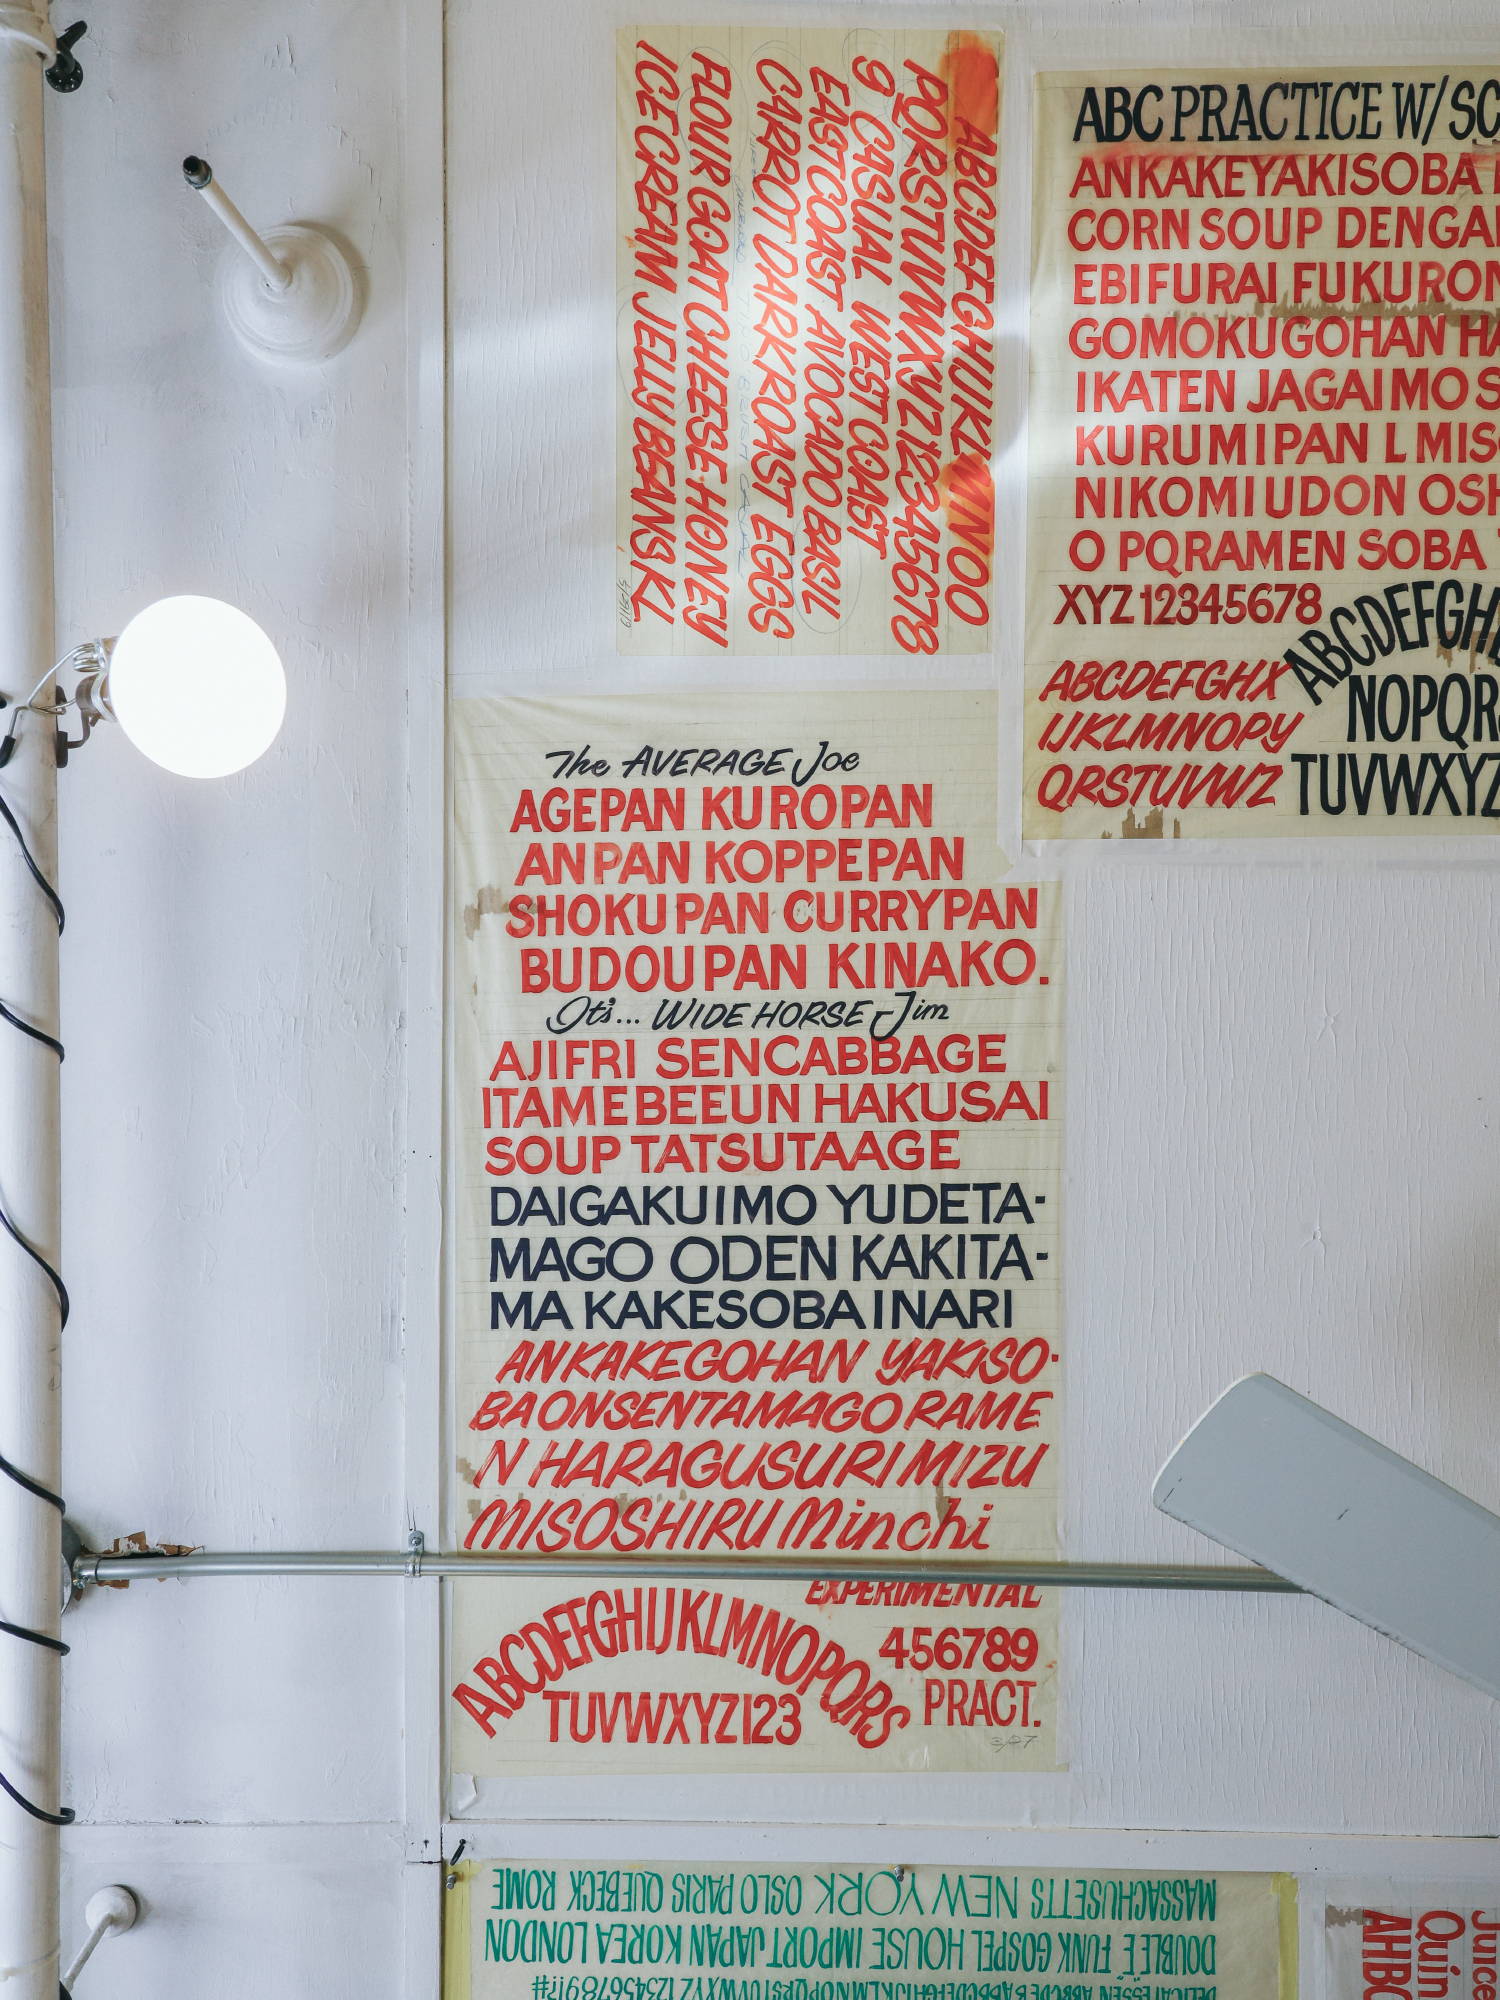 ABCDEFGHIJKLMNOO
PQRSTUVWXYZ12345678
9 CASUAL WEST COAST
EAST COAST AVOCADO BASIL
CARROT DARK ROAST EGGS
FLOUR GOAT CHEESE HONEY
ICE CREAM JELLY BEANS KL
5/29/19
ABC PRACTICE W/ SC
ANKAKEYAKISOBA
CORN SOUP DENGA
EBIFURAI FUKURON
GOMOKUGOHAN HA
IKATEN JAGAIMO S
KURUMIPAN L MIS
NIKOMIUDON OSH
O PQRAMEN SOBA
XYZ 12345678
ABCDEFGH
NOPQR
TUVWXYZ
ABCDEFGHX
IJKLMNOPY
QRSTUVWZ
The AVERAGE Joe
AGEPAN KUROPAN
ANPAN KOPPEPAN
SHOKUPAN CURRYPAN
BUDOUPAN KINAKO.
It's... WIDE HORSE Jim
AJIFRI SENCABBAGE
ITAMEBEEUN HAKUSAI
SOUP TATSUTAAGE
DAIGAKUIMO YUDETA-
MAGO ODEN KAKITA-
MA KAKESOBA INARI
ANKAKEGOHAN YAKISO-
BA ONSENTAMAGO RAME
N HARAGUSURI MIZU
MISOSHIRU Minchi
EXPERIMENTAL
ABCDEFFGHIJKLMNOPQRS
TUVWXYZ123
456789
PRACT.
3/27
MASSACHUSETTS NEW YORK OSLO PARIS QUEBECK ROME
DOUBLE E FUNK GOSPEL HOUSE IMPORT JAPAN KOREA LONDON
Juice
Quin
AHBC